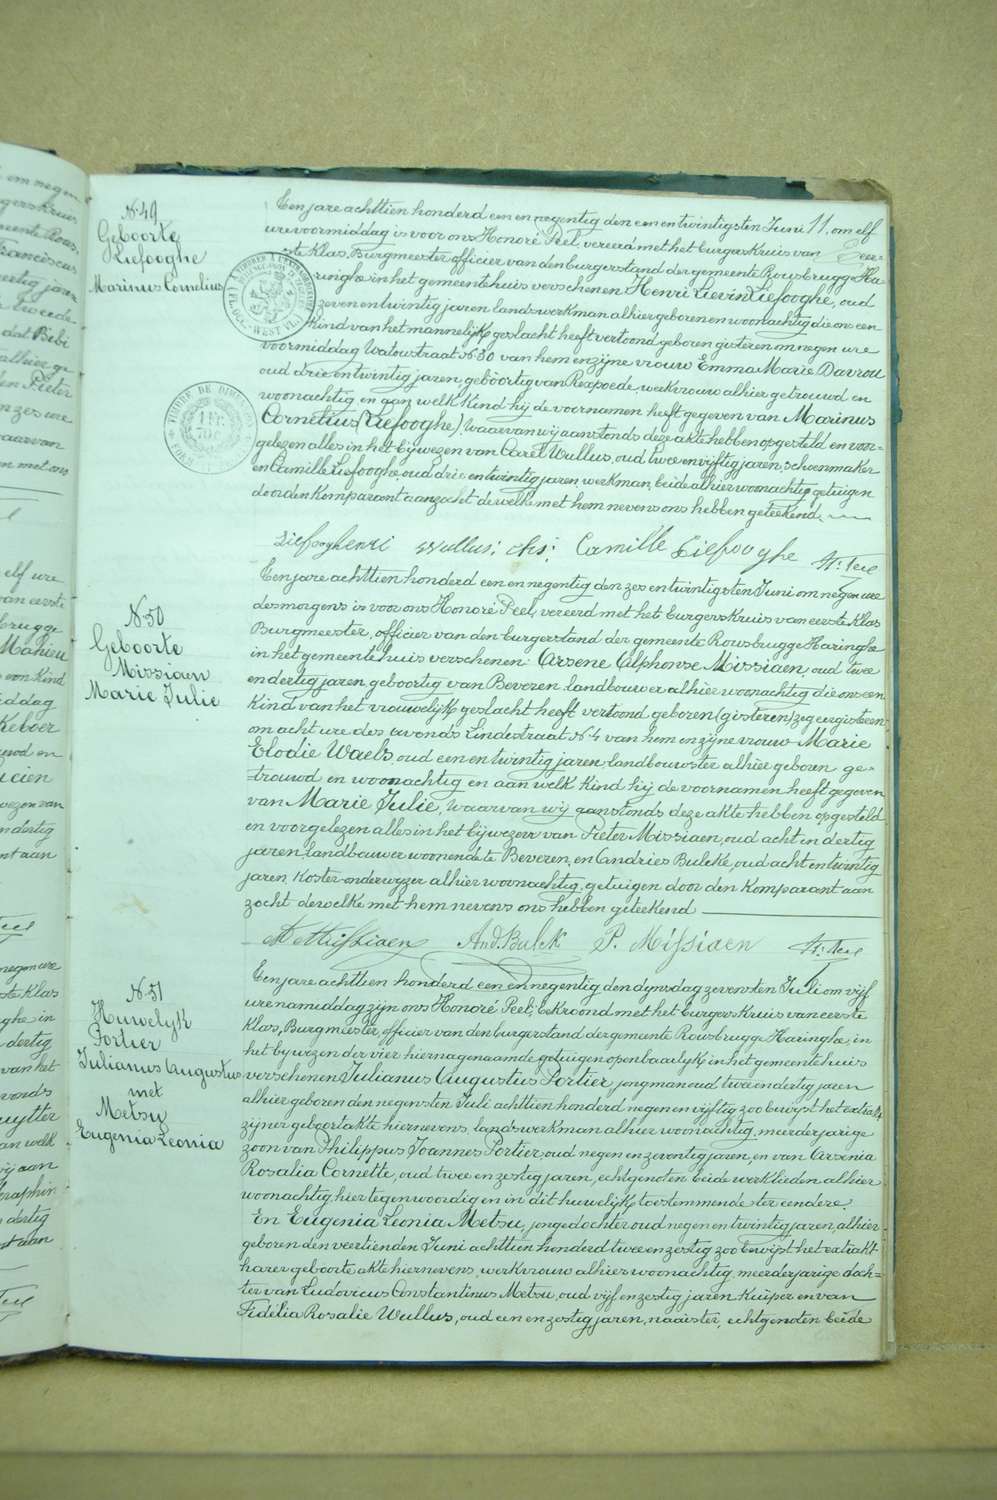 N. 49
Geboorte
Liefooghe
Marinus Cornelius
Een jare achttien honderd een en negentig den een en twintigsten Juni 11, om elf
ure voormiddag is voor ons Honoré Peel, vereerd met het burgerskruis van Eer=
ste Klas, Burgmeester officier van den burgerstand der gemeente Rousbrugge Ha=
ringhe in het gemeentehuis verschenen Henri Lievin Liefooghe, oud
zeven en twintig jaren landswerkman alhier geboren en woonachtig die ons een
kind van het mannelijk geslacht heeft vertoond geboren gisteren om negen ure
voormiddag Watoustraat N. 80 van hem en zijne vrouw Emma Marie Davrou
oud drie en twintig jaren, geboortig van Rexpoede, werkvrouw alhier getrouwd en
woonachtig en aan welk kind hij de voornamen heeft gegeven van Marinus
Cornelius (Liefooghe). Waarvan wij aanstonds deze akte hebben opgesteld en voor=
gelezen alles in het bijwezen van Carel Wullus, oud twee en vijftig jaren, schoenmaker
en Camille Liefooghe, oud drie en twintig jaren, werkman, beide alhier woonachtig getuigen
door den Komparant aanzocht dewelke met hem nevens ons hebben geteekend.
Liefooghenri Wullus; chs; Camille Liefooghe H: Peel
N. 50
Geboorte
Missiaen
Marie Julie
Een jare achttien honderd een en negentig den zes en twintigsten Juni om negen ure
des morgens is voor ons Honoré Peel, vereerd met het burgerskruis van eerste Klas
Burgmeester, officier van den burgerstand der gemeente Rousbrugge Haringhe
in het gemeentehuis verschenen: Arsene Alphonse Missiaen, oud twee
en dertig jaren, geboortig van Beveren, landbouwer alhier woonachtig die ons een
Kind van het vrouwelijk geslacht heeft vertoond geboren (gisteren) zeg eergisteren
om acht ure des avonds Lindestraat N. 4 van hem en zijne vrouw Marie
Elodie Waels, oud een en twintig jaren, landbouwster alhier geboren ge=
trouwd en woonachtig en aan welk kind hij de voornamen heeft gegeven
van Marie Julie, Waarvan wij aanstonds deze akte hebben opgesteld
en voorgelezen alles in het bijwezen van Pieter Missiaen, oud acht en dertig
jaren, landbouwer woonende te Beveren, en Andries Bulcke, oud acht en twintig
jaren, Koster-onderwyzer alhier woonachtig, getuigen door den Komparant aan
zocht dewelke met hem nevens ons hebben geteekend
A Missiaen And. Bulck P. Missiaen H: Peel
N. 51
Huwelyk
Portier
Julianus Augustus
met
Metsu
Eugenia Leonia
Een jare achttien honderd een en negentig den dynsdag zevensten Juli om vijf
ure namiddag zijn ons Honoré Peel, bekroond met het burgerskruis van eerste
Klas, Burgmeester, officier van den burgerstand der gemeente Rousbrugge Haringhe, in
het bywezen der vier hiernagenaamde getuigen openbaarlijk in het gemeentehuis
verschenen Julianus Augustus Portier, jongman oud twee en dertig jaren
alhier geboren den negensten Juli achttien honderd negen en vijftig zoo bewyst het extrakt
zijner geboortakte hiernevens, landswerkman alhier woonachtig, meerderjarige
zoon van Philippus Joannes Portier, oud negen en zeventig jaren, en van Arsenia
Rosalia Cornette, oud twee en zestig jaren, echtgenoten beide werklieden alhier
woonachtig, hier tegenwoordig en in dit huwelijk toestemmende ter eendere.
En Eugenia Leonia Metsu, jongedochter oud negen en twintig jaren, alhier
geboren den veertienden Juni achttien honderd twee en zestig zoo bewijst het extrakt
harer geboorte akte hiernevens, werkvrouw alhier woonachtig, meerderjarige doch=
ter van Ludovicus Constantinus Metsu, oud vijf en zestig jaren Kuiper en van
Fidelia Rosalie Wullus, oud een en zestig jaren, naaister, echtgenoten beide